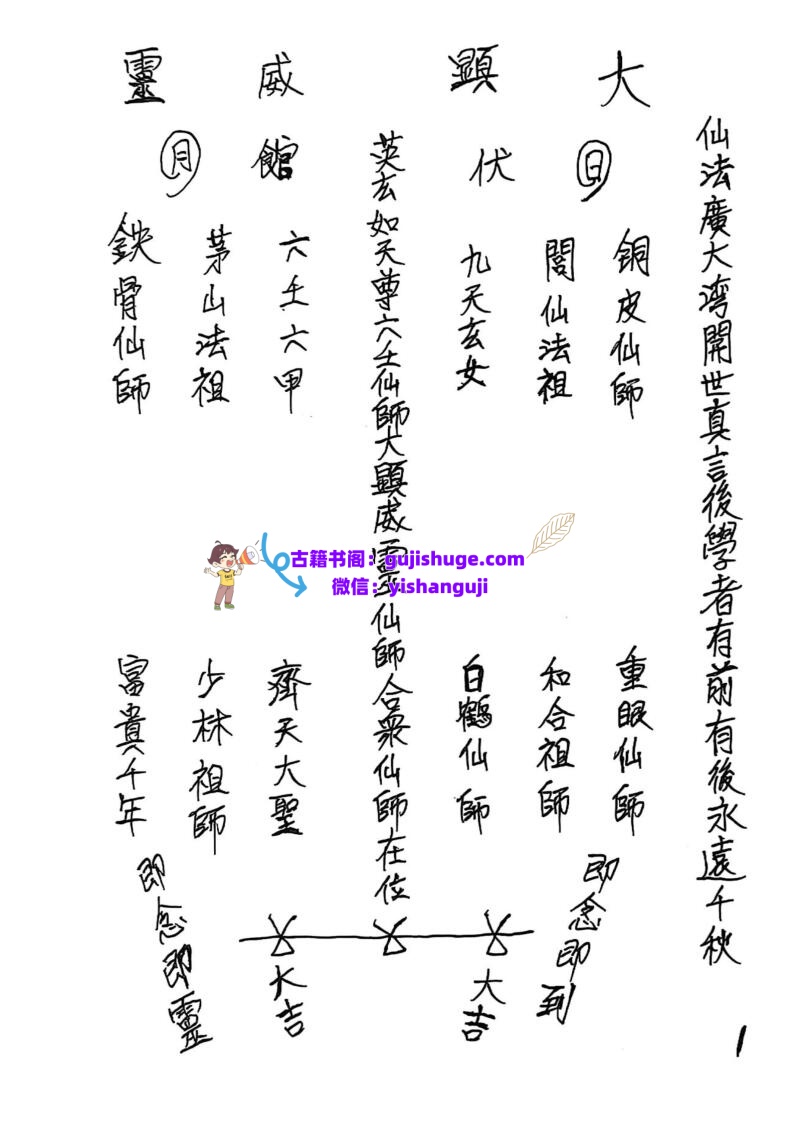 仙法廣大湾開世真言後學者有前有後永遠千秋
大顕威靈
日
伏
館
月
銅皮仙師
閭仙法祖
九天玄女
英玄如天尊六壬仙師大顕威靈仙師合衆仙師在位
六壬六甲
茅山法祖
鉄骨仙師
古籍书阁：gujishuge.com
微信：yishanguji
重眼仙師
和合祖師
白鶴仙師
齊天大聖
少林祖師
富貴千年
即念即到
大吉
大吉
即念即靈
1